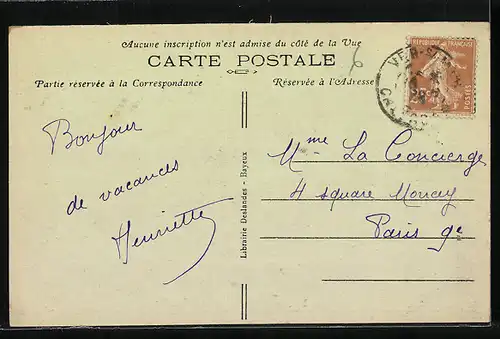 Aucune inscription n'est admise du côté de la Vue
CARTE POSTALE
Partie réservée à la Correspondance
Réservée à l'Adresse
REPUBLIQUE FRANÇAISE
POSTES
6
Bonjour
de vacances
Henriette
Librairie Deslandes - Bayeux
Mme La Concierge
4 square Moncey
Paris 9e